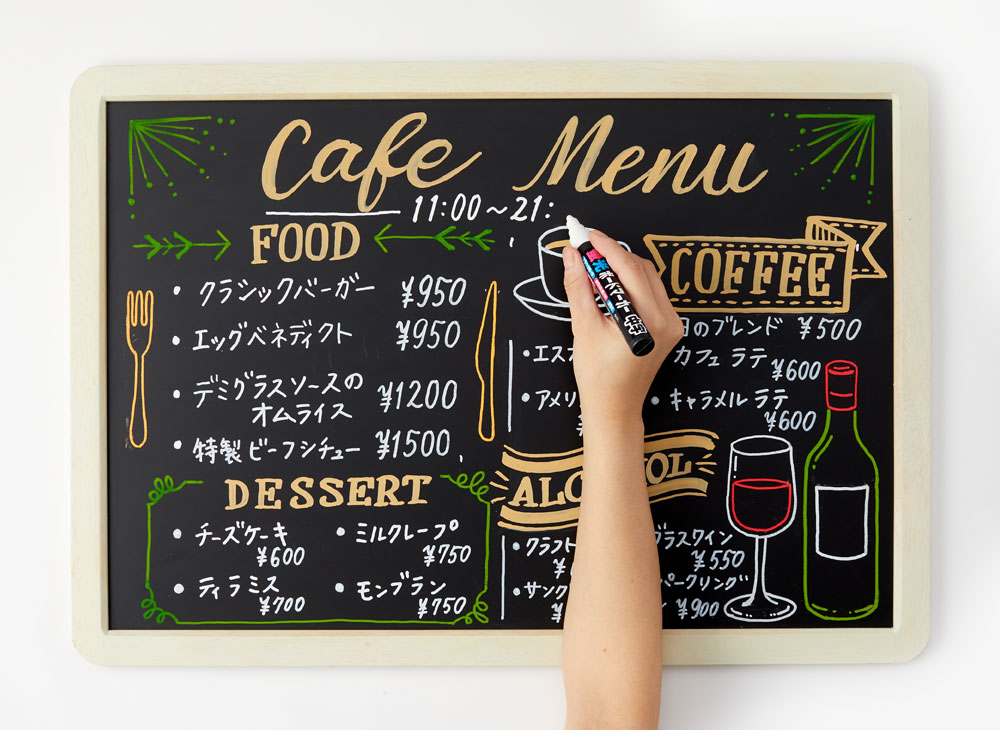 Cafe Menu
11:00～21:
FOOD
・クラシックバーガー ¥950
・エッグベネディクト ¥950
・デミグラスソースの
オムライス ¥1200
・特製ビーフシチュー ¥1500
DESSERT
・チーズケーキ
¥600
・ミルクレープ
¥750
・ティラミス
¥700
・モンブラン
¥750
COFFEE
のブレンド ¥500
・エス
カフェラテ
¥600
・アメリ
・キャラメルラテ
¥600
ALCOHOL
・クラフト
グラスワイン
¥550
・サング
パークリング
¥900